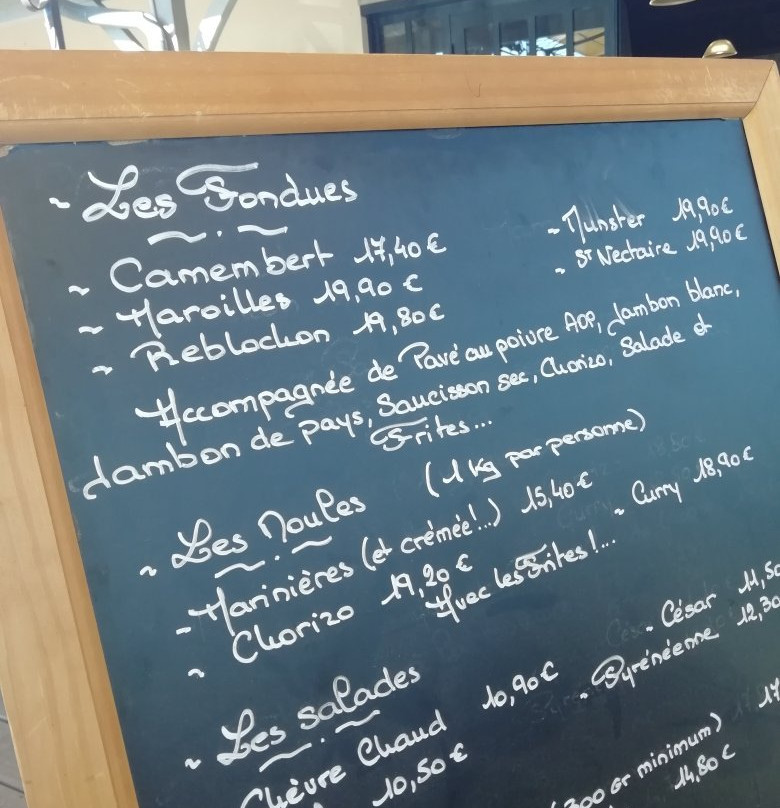 ~ Les Fondues
~ Camembert 17,40 €
- Munster 19,90 €
~ Maroilles 19,90 €
- St Nectaire 19,90 €
~ Reblochon 19,80 €
Accompagnée de Pavé au poivre AOP, Jambon blanc,
Jambon de pays, Saucisson sec, Chorizo, Salade et
Frites...
~ Les Moules (1 Kg par personne)
- Marinières (et crémée!..) 15,40 €
- Curry 18,90 €
~ Chorizo 19,20 €
Avec les Frites !...
~ Les salades
- César 11,50
Chèvre Chaud 10,90 €
- Pyrénéenne 12,30
10,50 €
(300 Gr minimum) 17
14,80 €